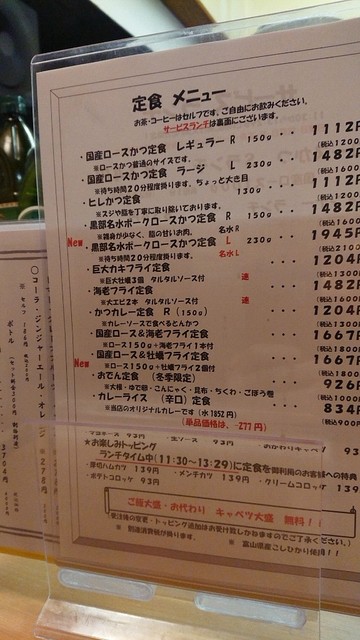 定食 メニュー
お茶・コーヒーはセルフです、ご自由にお飲みください。
サービスランチは裏面にございます。
・国産ロースかつ定食 レギュラー R 150g ・・・ 1112円
※ロースかつ普通のサイズです。 (税込1200
・国産ロースかつ定食 ラージ L 230g ・・・ 1482円
※待ち時間20分程度掛ります。ちょっと大き目 (税込1600
・ヒレかつ定食 130g ・・・ 1112円
※スジや脂を丁寧に取り除いております。 (税込1200
・黒部名水ポークロースかつ定食 R 150g ・・・ 1482円
※霜身が少なく、脂の甘いお肉。 名水R (税込1600
New ・黒部名水ポークロースかつ定食 L 230g ・・・ 1945円
※待ち時間20分程度掛ります。 名水L (税込2100
・巨大カキフライ定食 ・・・ 1204円
※巨大牡蠣3個 タルタルソース付 速 (税込1300
・海老フライ定食 ・・・ 1482円
※大エビ2本 タルタルソース付 速 (税込1600
・かつカレー定食 R (150g) ・・・ 1204円
※カレーソースで食べるとんかつ (税込1300
・国産ロース&海老フライ定食 ・・・ 1667円
※ロース150g+海老フライ1本付 (税込1800
・国産ロース&牡蠣フライ定食 ・・・ 1667円
New ※ロース150g+牡蠣フライ2個付 (税込1800
・おでん定食 (冬季限定) ・・・ 926円
※大根・ゆで卵・こんにゃく・昆布・ちくわ・ごぼう巻 (税込1000
・カレーライス (辛口) 定食 ・・・ 834円
※当店のオリジナルカレーです (税込900
(単品価格は、-277円)
93円 ・生ソース 93円 ・おかわりキャベツ 93円
★お楽しみトッピング
ランチタイム中(11:30~13:29)に定食を御利用のお客様への特典
・厚切ハムカツ 139円 ・メンチカツ 139円 ・クリームコロッケ 139円
・ポテトコロッケ 93円
ご飯大盛・お代わり キャベツ大盛 無料!!
受注後の変更・トッピング追加はお受け致しかねますのでご了承ください。
※ 別途消費税が掛ります。 ※ 富山県産こしひかり使用!!
〇コーラ・ジンジャーエール・オレンジ